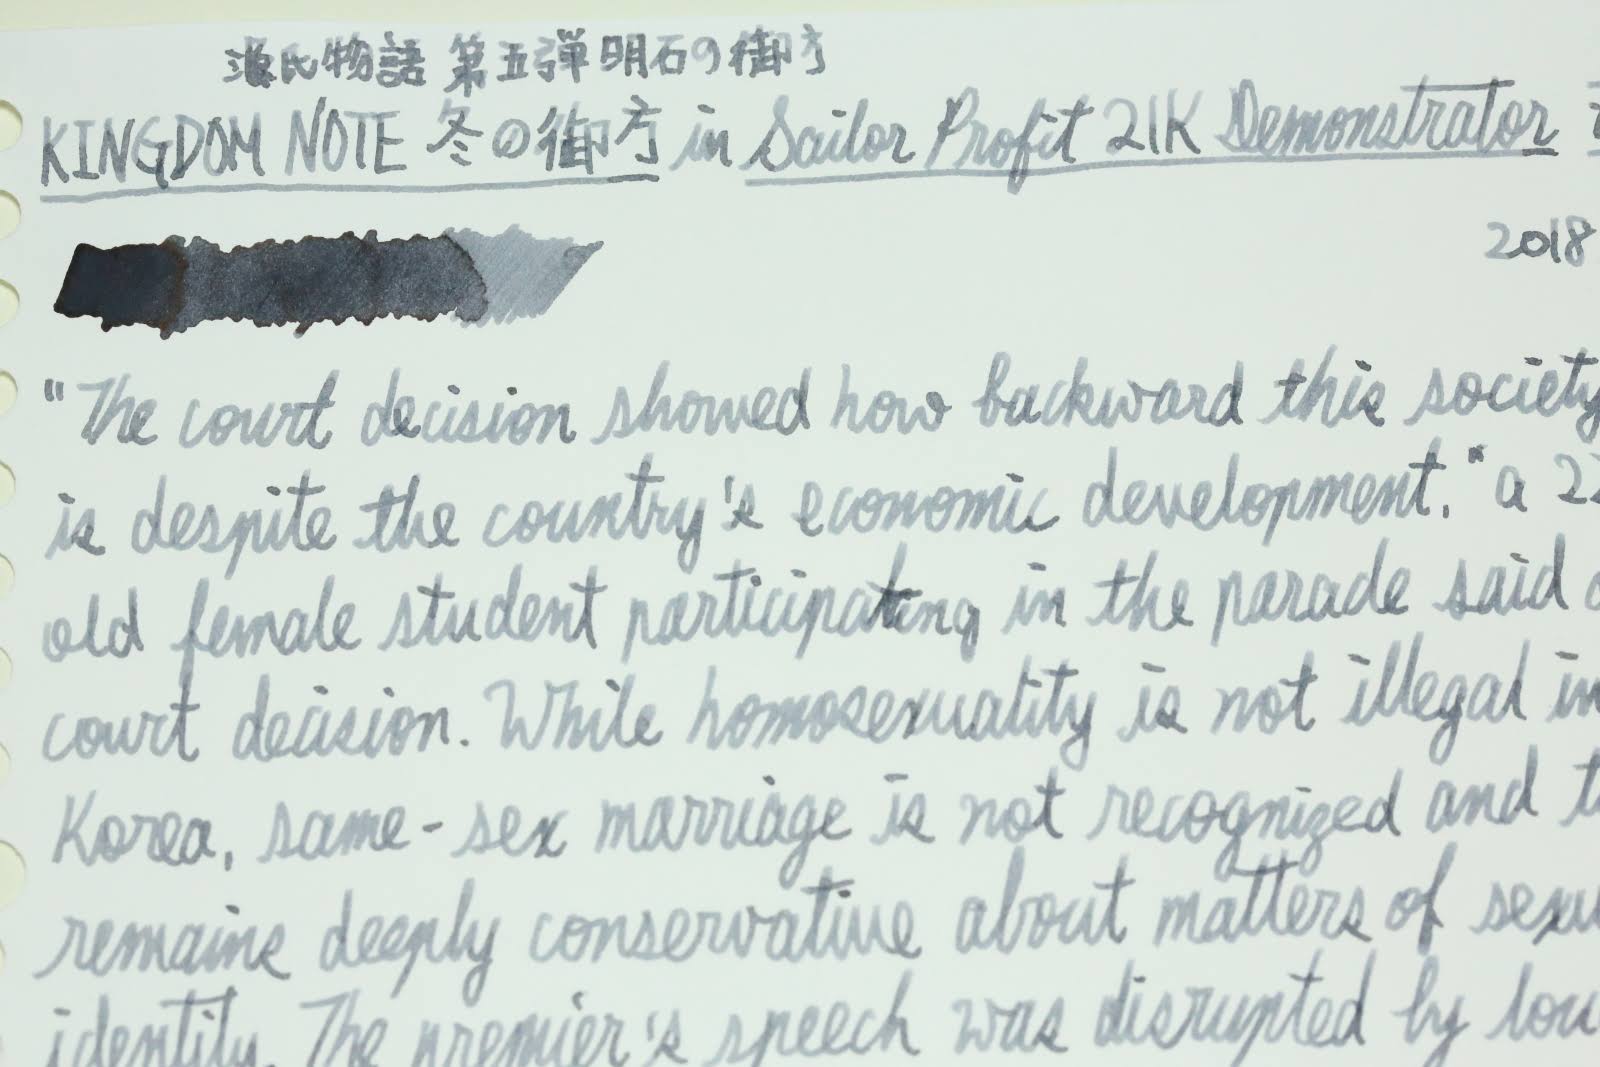 源氏物語 第五弾 明石の御方
KINGDOM NOTE 冬の御方 in Sailor Profit 21K Demonstrator
2018
"The court decision showed how backward this society
is despite the country's economic development." a
old female student participating in the parade said
court decision. While homosexuality is not illegal in
Korea, same-sex marriage is not recognized and
remains deeply conservative about matters of
identity. The premier's speech was disrupted by